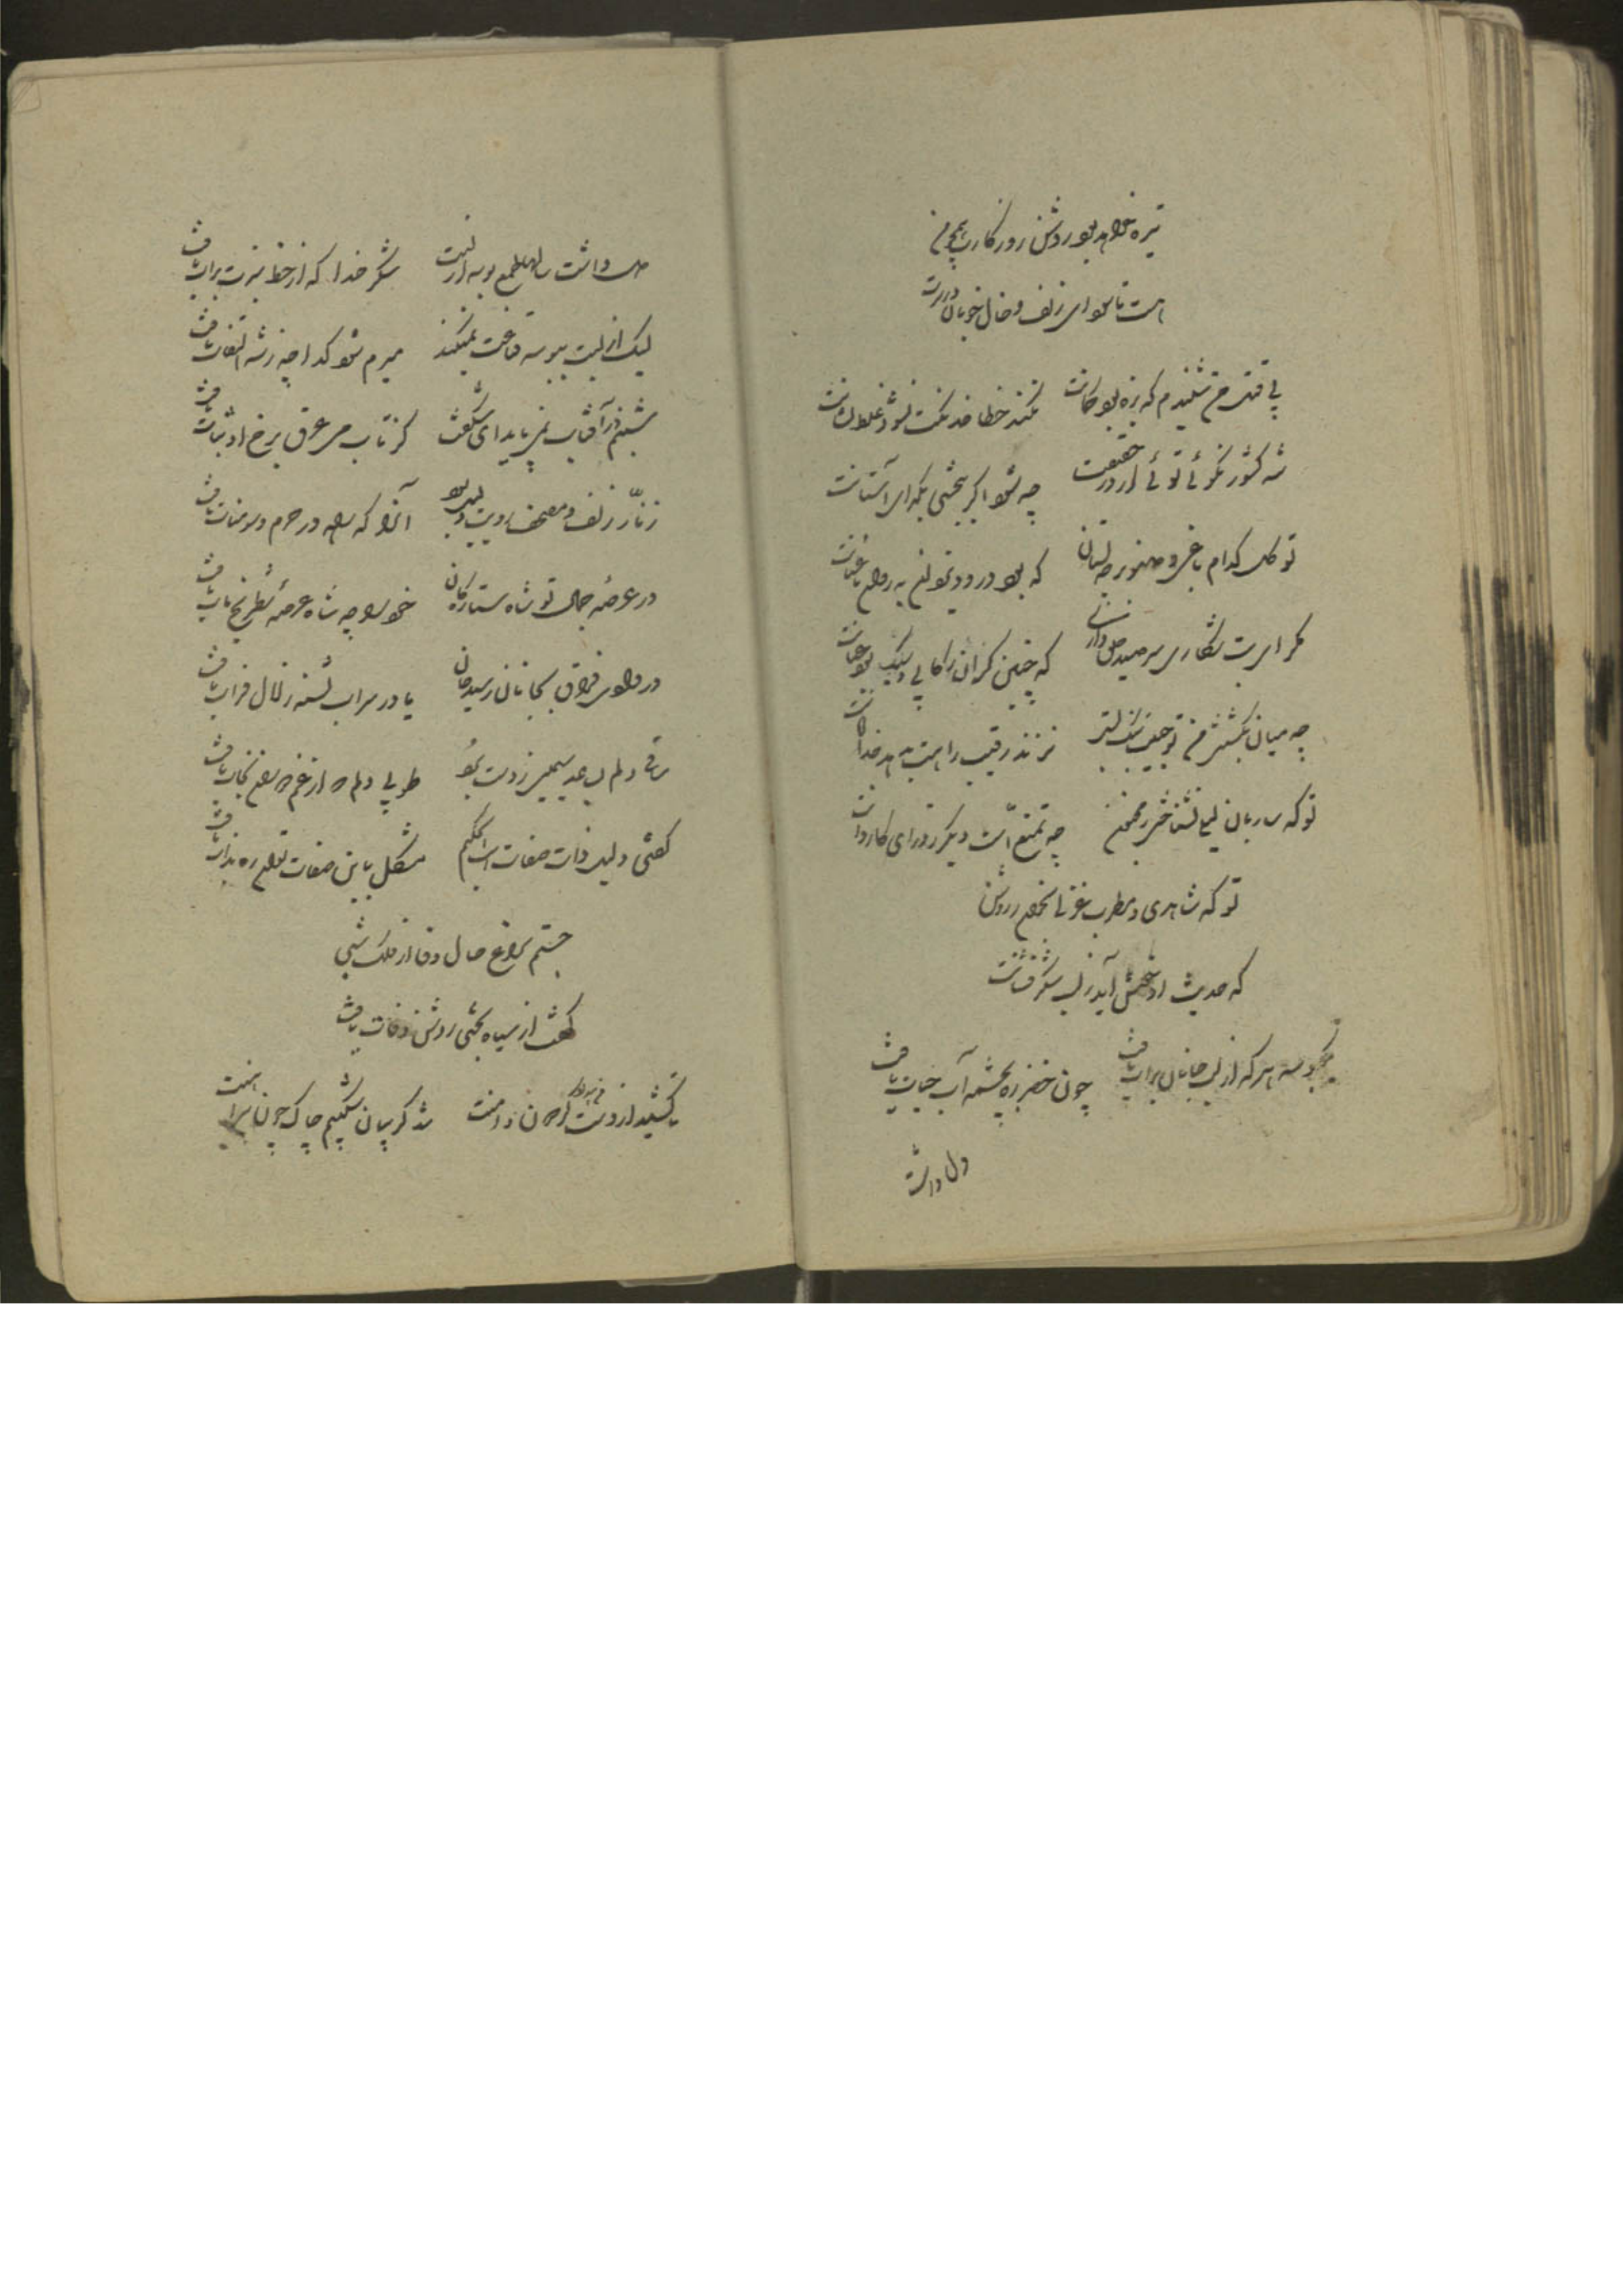 تیره خواهد بود روشن روزگارت همچو من
است تا سودای زلف و خال خوبان در سرت
پی قتل من شنیدم که بزه بود کمانت نکند خطا خدنگت نشود غلط نشانت
شه کشور نکوئی توئی از در حقیقت چه شود اگر ببخشی بگدای آستانت
تو گل کدام باغی و صنوبر چه بستان که بود درود
مگر ای بت شکاری سر صید داری که چنین گران رکابی و سبک بود عنانت
چه میان بکشتن من تو حبیب تنگ بستی نزند رقیب راهت بدهد خدا
تو که ساربان لیلی نشناختی ز مجنون چه تمتع است دیگر ز درای کاروانت
تو که شاهدی و مطرب غزلی بخوان ز روشن
که حدیث او خوش آید ز لب شکرفشانت
بوسه هر که از لب جانان برات یافت چون خضر ره بچشمه آب حیات یافت
دل داشت
دل داشت سالها طمع بوسه از لبت شکر خدا که از خط سبزت برات یافت
لیک از لبت ببوسه قناعت نمیکند مبرم شود گدا چو ز شه التفات یافت
شبنم در آفتاب نمی‌پاید ای شگفت کز تاب می عرق برخ او ثبات یافت
زنار زلف و مصحف رویت دلیل بود آنرا که راه در حرم و سومنات یافت
در عرصه جمال تو شاه ستارگان خود را چو شاه عرصه شطرنج مات یافت
در وادی فراق بجانان رسید جان یا در سراب تشنه زلال فرات یافت
ساقی دلم ساعد سیمین ز دست برد طوبی دلم که از غم نجات یافت
گفتی دلیل ذات صفات است ای حکیم مشکل باین صفات توان ره بذات یافت
جستم سراغ حال وفا از فلک شبی
گفت از سیاه بختی روشن وفات یافت
تا کشید از دست من دامنت شد گریبان شکیبم چاک چون پیراهنت